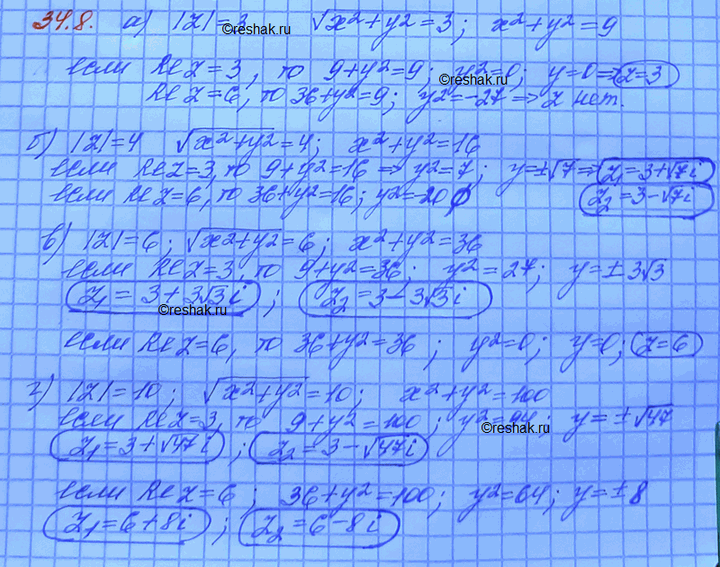 34.8. а) |z|=3 √x²+y²=3; x²+y²=9
если Re z=3, то 9+y²=9; y²=0; y=0 ⇒ z=3
Re z=6, то 36+y²=9; y²=-27 ⇒ z нет.
б) |z|=4 √x²+y²=4; x²+y²=16
если Re z=3, то 9+y²=16 ⇒ y²=7; y=±√7 ⇒ z₁=3+√7i
если Re z=6, то 36+y²=16; y²=-20 ∅ z₂=3-√7i
в) |z|=6; √x²+y²=6; x²+y²=36
если Re z=3, то 9+y²=36; y²=27; y=±3√3
z₁=3+3√3i; z₂=3-3√3i
если Re z=6, то 36+y²=36; y²=0; y=0; z=6
г) |z|=10; √x²+y²=10; x²+y²=100
если Re z=3, то 9+y²=100; y²=94; y=±√47
z₁=3+√47i; z₂=3-√47i
если Re z=6; 36+y²=100; y²=64; y=±8
z₁=6+8i; z₂=6-8i
©reshak.ru
©reshak.ru
©reshak.ru
©reshak.ru